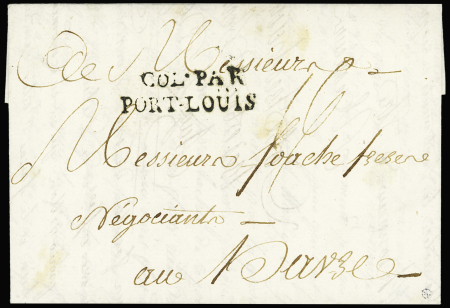 De Messieurs
COL. PAR
PORT-LOUIS
Messieurs foache freres
Négociants
au Havre